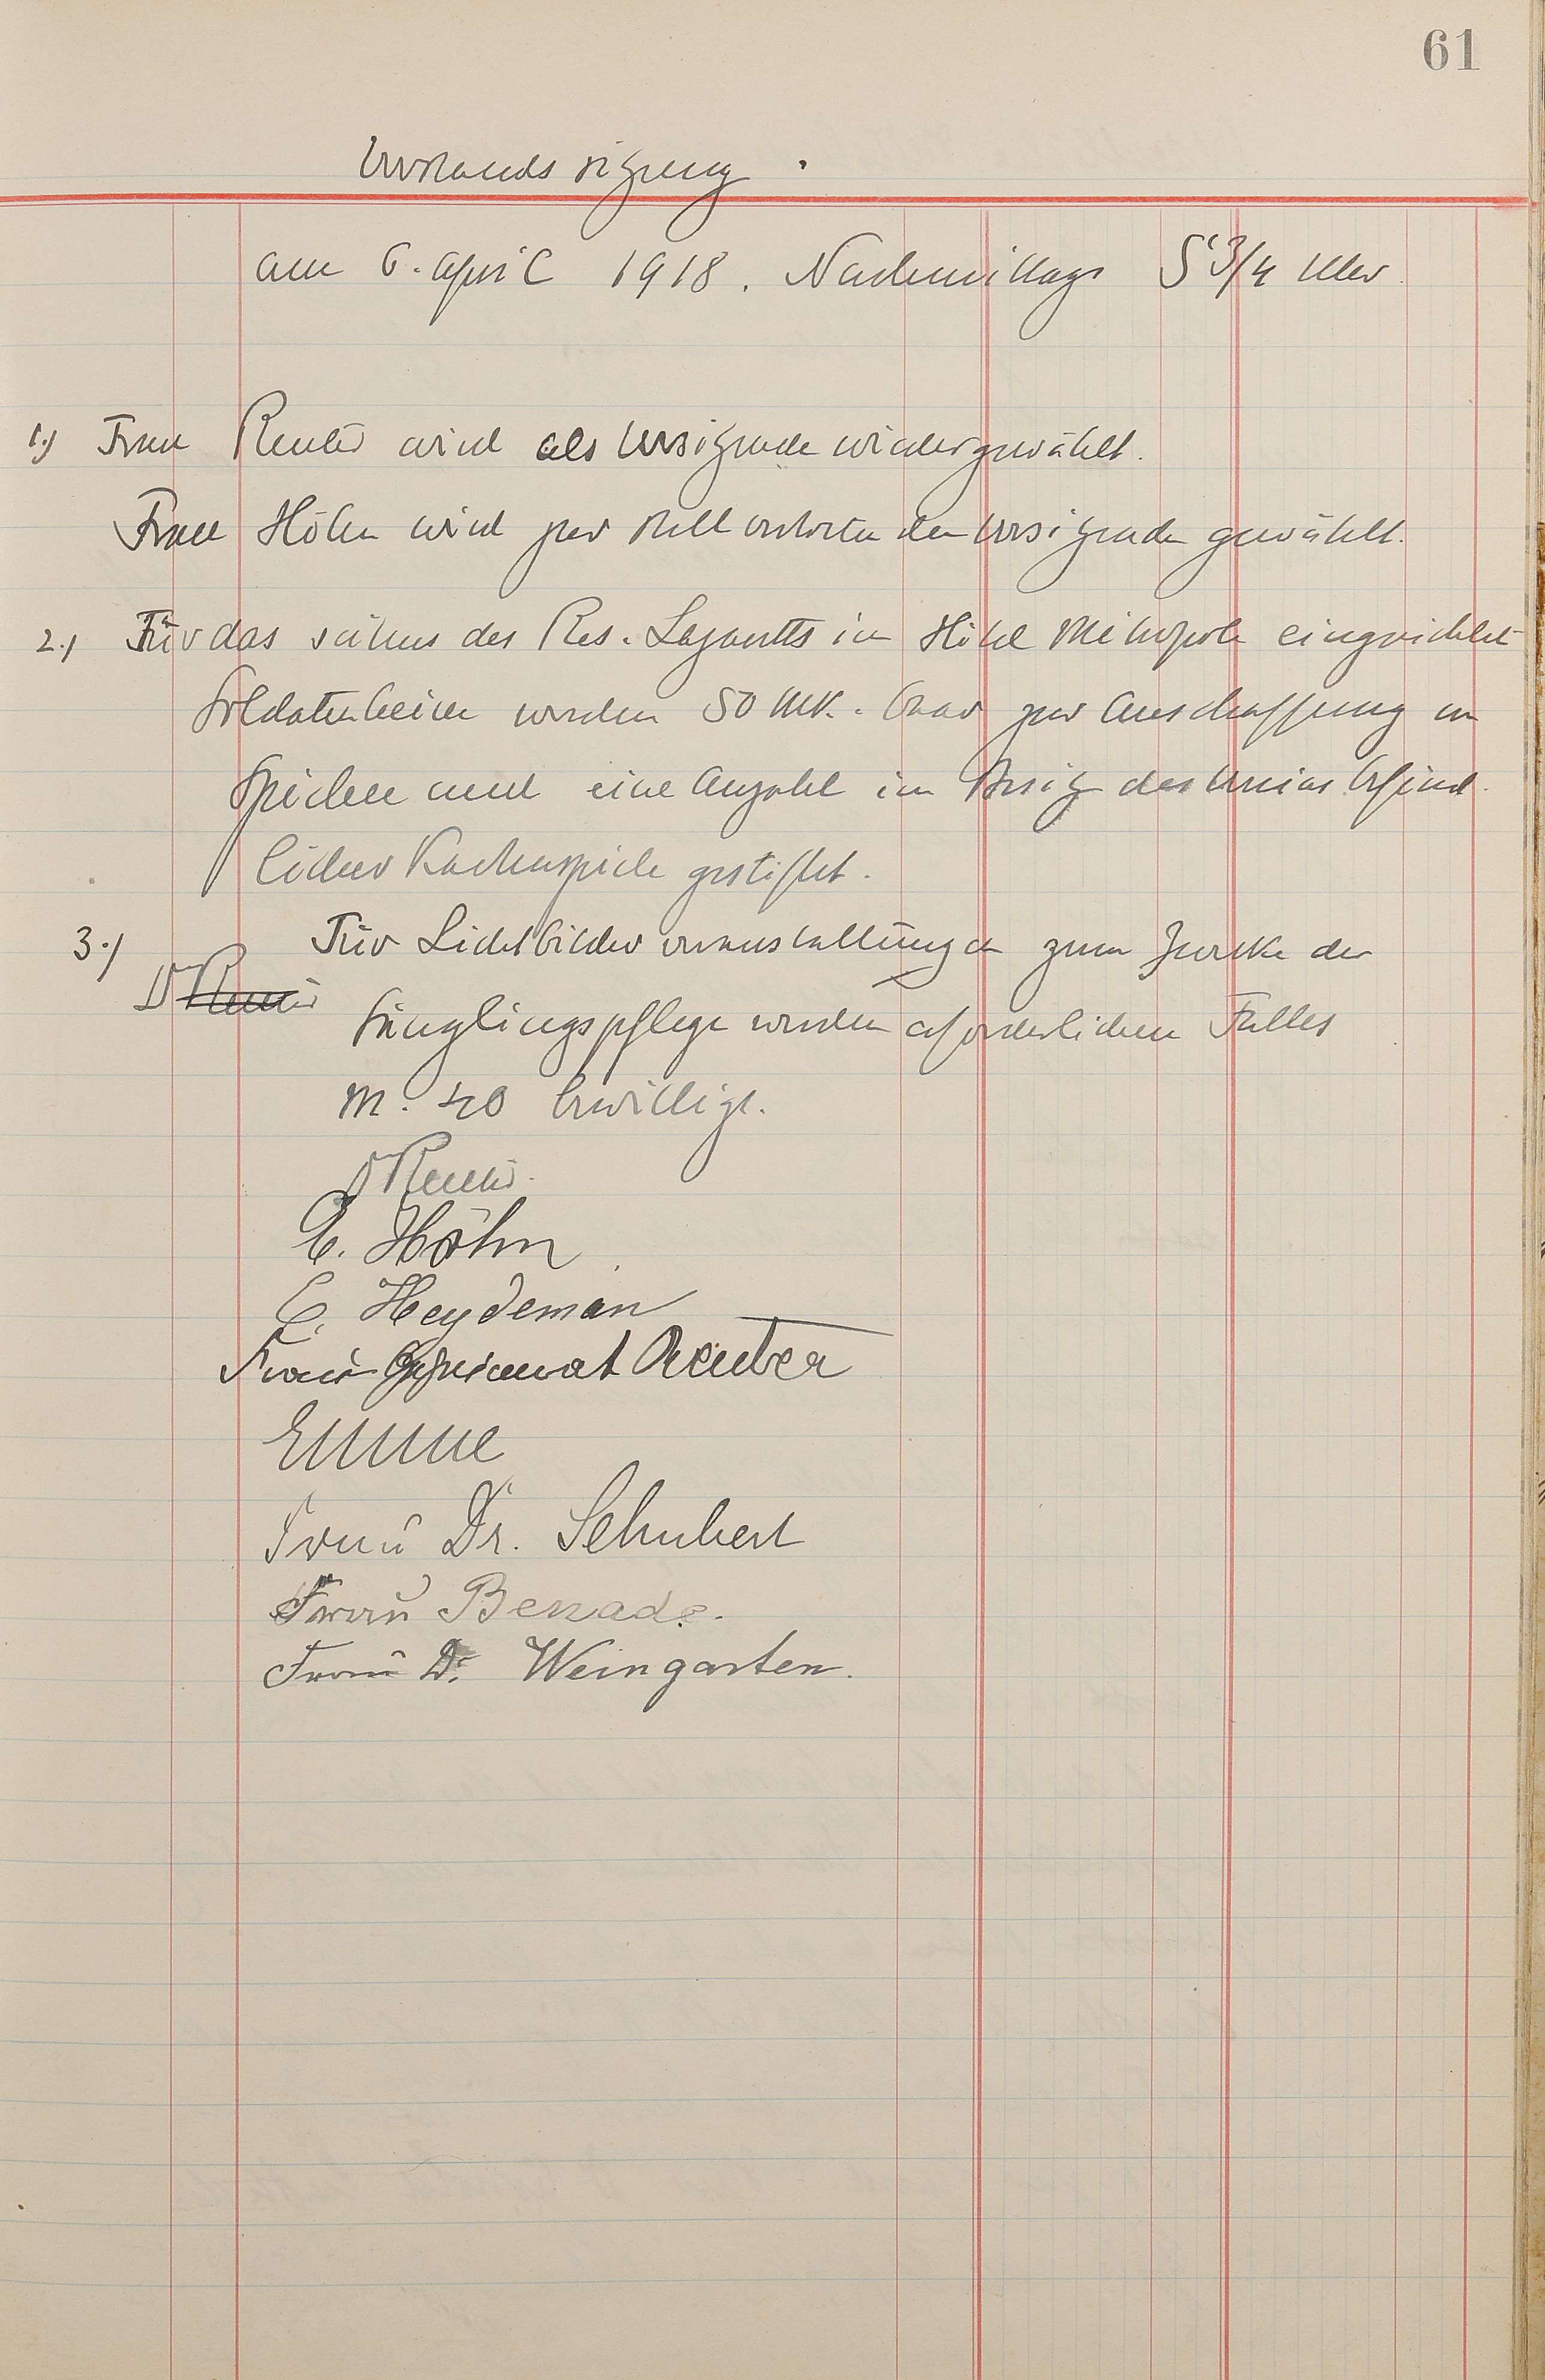 61
Vorstandssitzung.
am 6. April 1918. Nachmittags 5 3/4 Uhr.
1.) Frau Reuter wird als Vorsitzende wiedergewählt.
Frau Höhn wird zur stellvertretenden Vorsitzenden gewählt.
2.) Für das seitens des Res. Lazaretts im Hotel Metropole eingerichtete
Soldatenheim werden 50 Mk. bar zur Anschaffung von
Spielen und eine Anzahl im Besitz des Vereins befind-
licher Kartenspiele gestiftet.
3.) Für Lichtbilderveranstaltungen zum Zwecke der
Dr Reuter
Säuglingspflege werden erforderlichen Falles
M. 40 bewilligt.
Dr Reuter.
E. Höhn
E. Heydeman
Frau Reuter
Emme
Frau Dr. Schubert
Frau Benade.
Frau Dr. Weingarten.